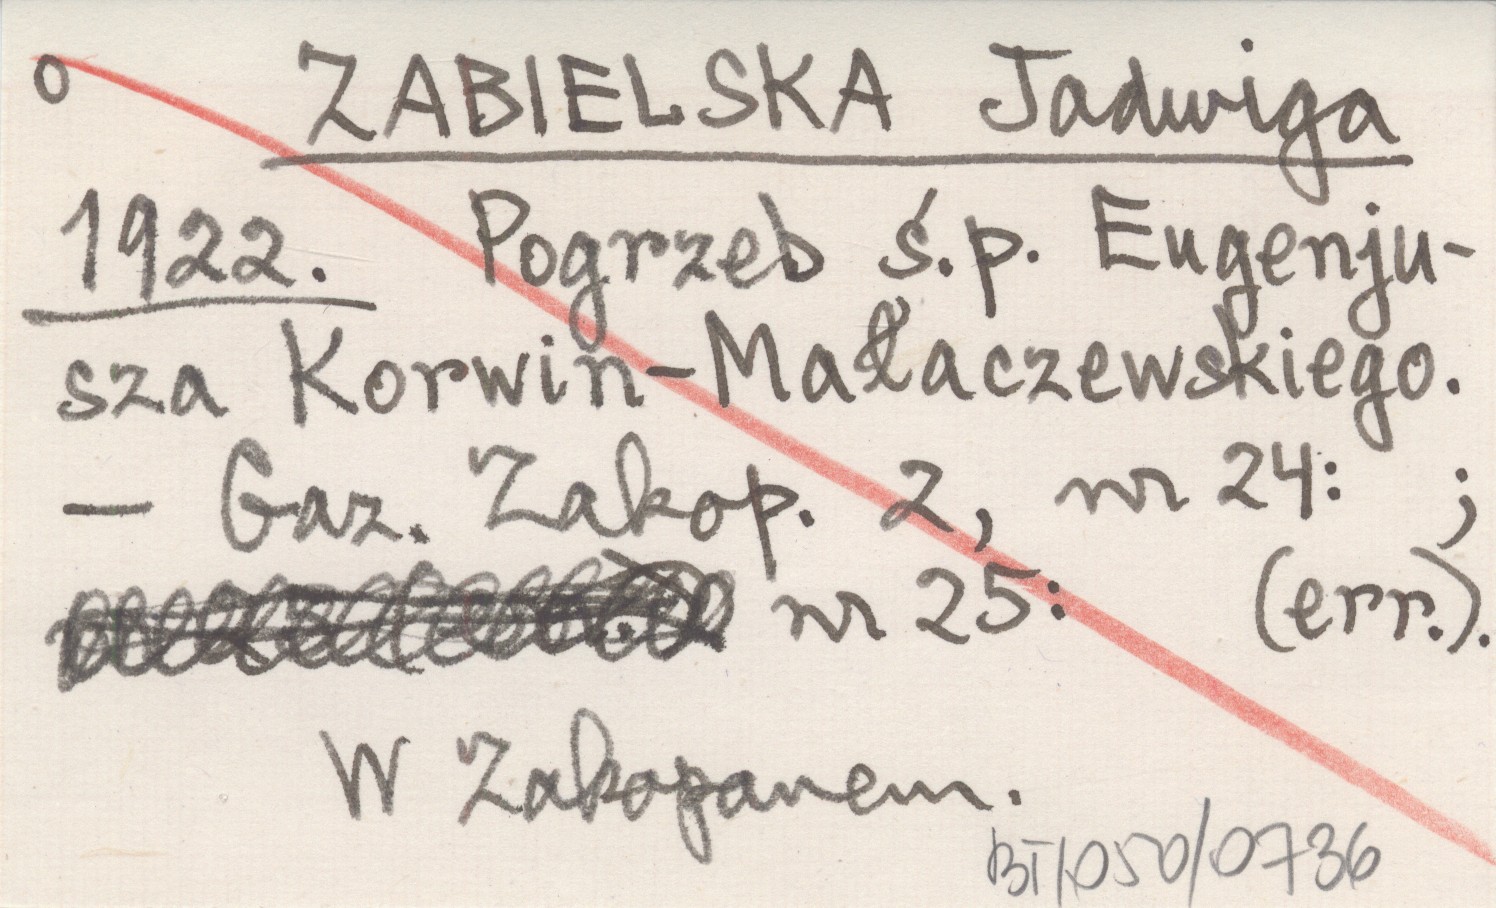 o ZABIELSKA Jadwiga
1922. Pogrzeb ś.p. Eugenju-
sza Korwin-Małaczewskiego.
— Gaz. Zakop. 2, nr 24: ;
nr 25: (err.).
W Zakopanem.
BT/050/0736